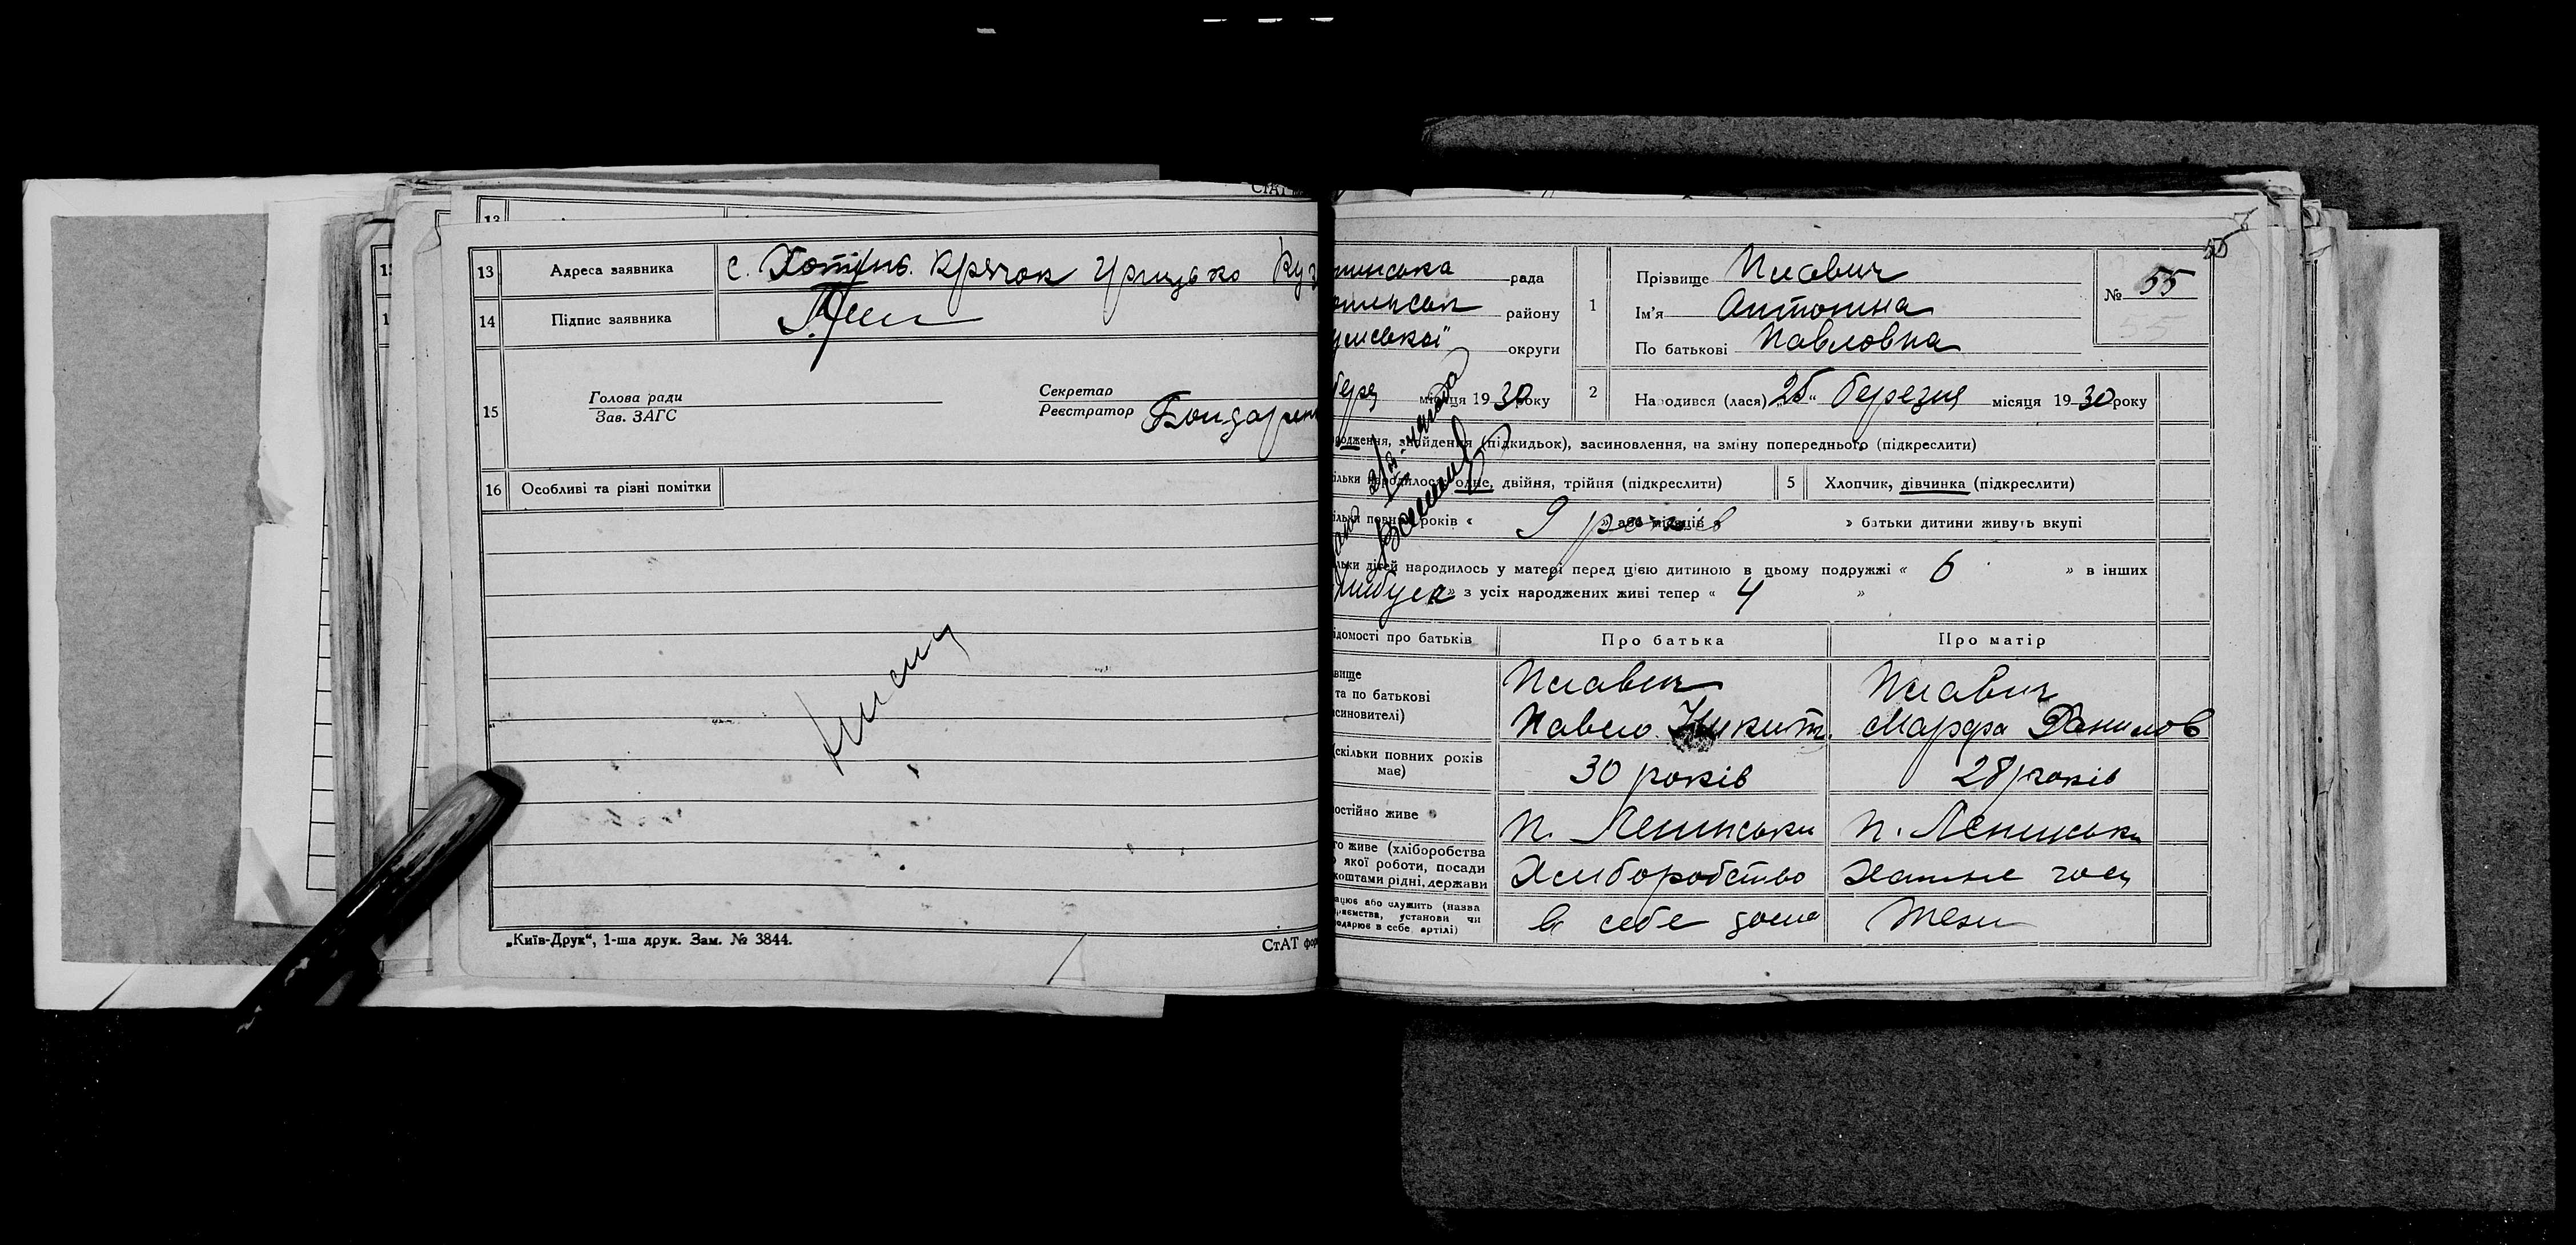 13 Адреса заявника с. Хотінь. Крячок Грицько Куз
14 Підпис заявника
15 Голова ради Секретар
Зав. ЗАГС Реєстратор Бондарен
16 Особливі та різні помітки
„Київ-Друк“, 1-ша друк. Зам. № 3844. СтАТ фор
тинська рада
району
умської округи
1 Прізвище Писавич
Ім'я Антонина
По батькові Павловна
№ 55
55
берез місяця 1930 року
2 Народився (лася) „25“ березня місяця 1930 року
одження, знайдення (підкидьок), засиновлення, на зміну попереднього (підкреслити)
ільки народилося одне, двійня, трійня (підкреслити) 5 Хлопчик, дівчинка (підкреслити)
ільки повних років « 9 років » або місяців « » батьки дитини живуть вкупі
льки дітей народилось у матері перед цією дитиною в цьому подружжі « 6 » в інших
» з усіх народжених живі тепер « 4 »
ідомості про батьків Про батька Про матір
вище
та по батькові
синовителі)
Писавич Писавич
Павло Никит. Марфа Данилов
(скільки повних років має) 30 років 28 років
остійно живе п. Ленинськи п. Ленинськи
го живе (хліборобства
якої роботи, посади
коштами рідні, держави
Хліборобство Хатнє госп
ацює або служить (назва
приємства, установи чи
подарює в себе, артілі)
в себе дома Теж